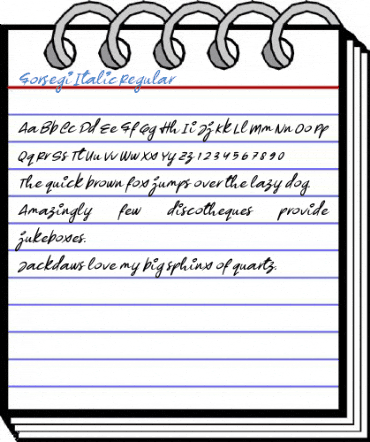 Gorsegi Italic Regular
Aa Bb Cc Dd Ee Ff Gg Hh Ii Jj Kk Ll Mm Nn Oo Pp
Qq Rr Ss Tt Uu Vv Ww Xx Yy Zz 1 2 3 4 5 6 7 8 9 0
The quick brown fox jumps over the lazy dog
Amazingly few discotheques provide
jukeboxes.
Jackdaws love my big sphinx of quartz.